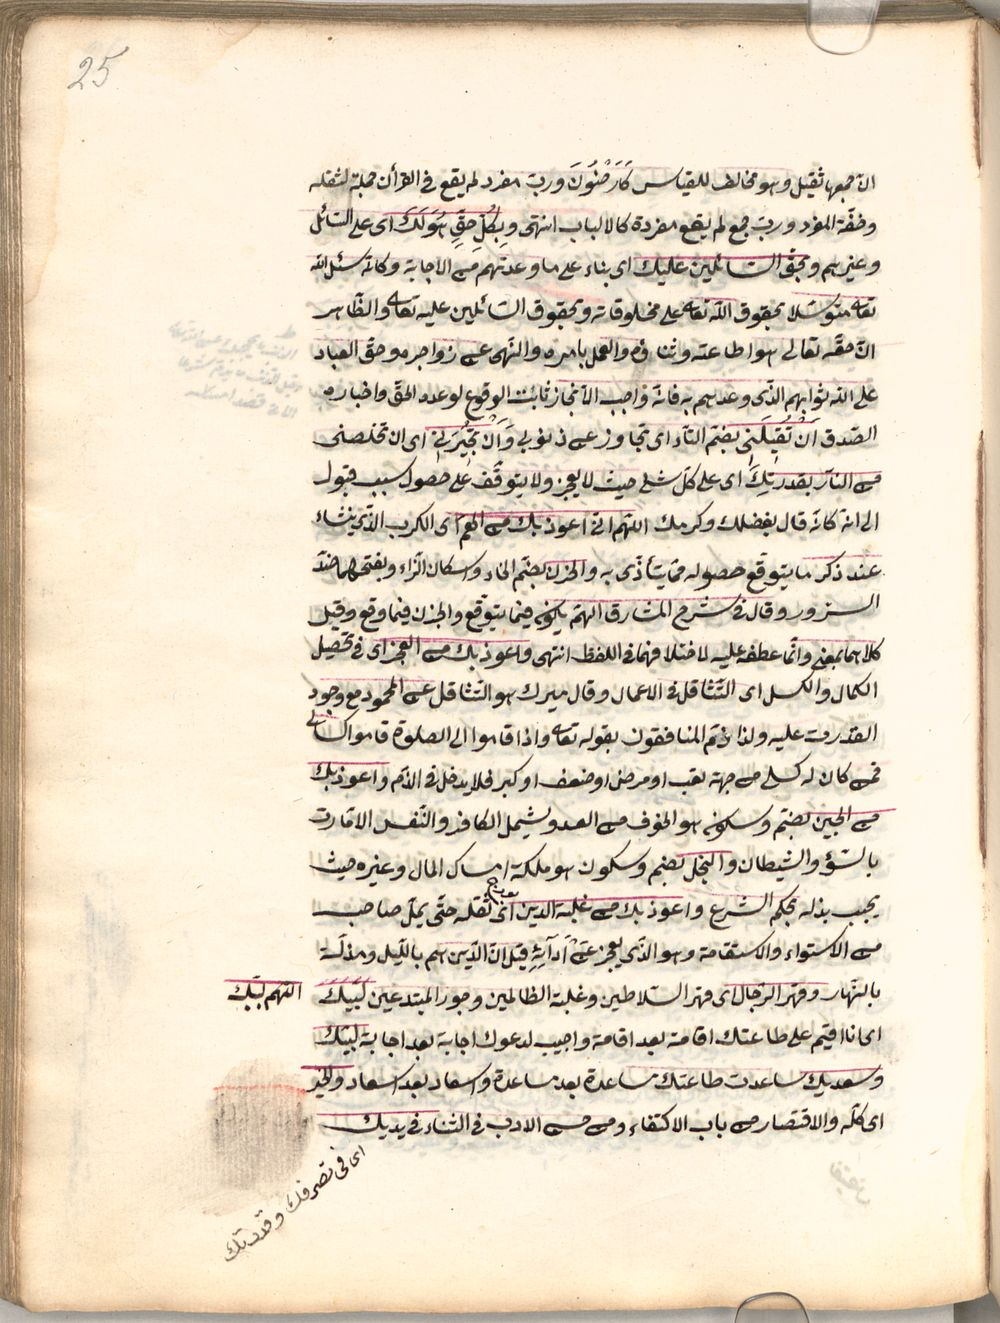 25
الآجمعها ثقيل وهو مخالف للقياس كَارَضُونَ وربّ مفرد لم يقع فى القرأن جمله لثقله
وخفّة المفرد وربّ جمع لم يقع مفرده كالالباب انتهى وبِكُلِّ حَقٍّ هُوَ لَكَ اى على السّائل
وغيرهم وبحقّ السّائلين عليك اى بناء على ما وعدتهم من الاجابة وكانّه سئل الله
تعالى متوسّلا بحقوق الله تعالى على مخلوقاته وبحقوق السّائلين عليه تعالى والظّاهر
انّ حقّه تعالى هو اطاعته وثناؤه والعمل بامره والنّهى عن زواجره وحقّ العباد
على الله ثوابهم الّذى وعدهم به فانّه واجب الانجاز ثابت الوقوع لوعده الحقّ واخباره
الصّدق اَنْ تُقِيلَنِى بضمّ التّاء اى تجاوز عن ذنوبى وَاَنْ تُجِيرَنِى اى ان تخلصنى
من النّار بقدرتِكَ اى على كلّ شئ حيث لا يعجز ولا يتوقّف على حصول سبب قبول
الى انه كانّه قال بفضلك وكرمك اللّهمّ انّى اعوذ بك من الهمّ اى الكرب الّذى ينشاء
عند ذكر ما يتوقّع حصوله ممّا يتأذّى به والحزن بضمّ الحاء واسكان الزّاء وبفتحهما ضدّ
السّرور وقال فى شرح المشارق الهمّ يكون فيما يتوقّع والحزن فيما وقع وقيل
كلاهما بمعنى وانّما عطفه عليه لاختلافهما فى اللفظ انتهى واعوذ بك من العجز اى فى تحصيل
الكمال والكسل اى التّثاقل فى الاعمال وقال ميرك هو التّثاقل عن المحمود مع وجود
القدرت عليه ولذا ذمّ المنافقون بقوله تعالى واذا قاموا الى الصلوة قاموا كسالى
فمن كان له كسل من جهة تعب او مرض او ضعف او كبر فلا يدخل فى الذّم واعوذ بك
من الجبن بضمّ وسكون هو الخوف من العدو يشمل الكافر والنّفس الامّارت
بالسّوء والشّيطان والبخل بضم وسكون هو ملكة امساك المال وغيره حيث
يجب بذله بحكم الشّرع واعوذ بك من غلبة الدين اى ثقله حتّى يميل صاحبه
من الاستواء والاستقامة وهو الّذى يعجز عَنْ اَدَآئِهِ قيل انّ الدّين هم باللّيل ومذلّة
بالنّهار وقهر الرّجال اى قهر السّلاطين وغلبة الظالمين وجور المبتدعين لَبَّيْكَ
اللّهم لبّيك
اى انا اقيم على طاعتك اقامة بعد اقامة واجيب لدعوك اجابة بعد اجابة لبّيك
وسعديك ساعدت طاعتك مساعدة بعد مساعدة واسعاد بعد اسعاد والخير
اى كلّه والاقتصار من باب الاكتفاء ومن حسن الادب فى الثناء فى يديك
اى فى تصرفك وقدرتك